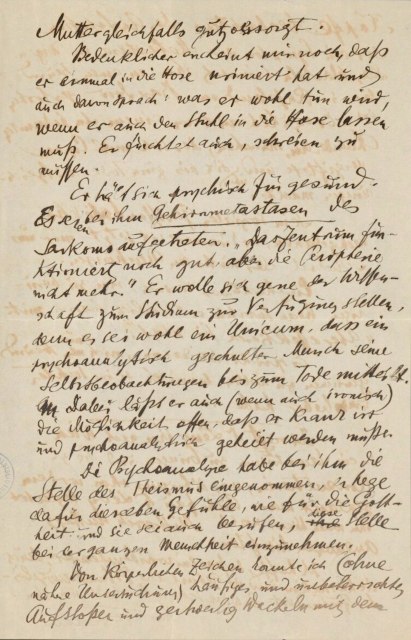 Mutter gleichfalls gut besorgt.
Bedenklicher erscheint mir noch, daß
er einmal in die Hose uriniert hat und
auch davon sprach: was er wohl tun wird,
wenn er auch den Stuhl in die Hose lassen
muß. Er fürchtet auch, schreien zu
müssen.
Er hält sich psychisch für gesund.
Es seien bei ihm Gehirnmetastasen des
Sarkoms aufgetreten. „Das Zentrum fun-
ktioniert noch gut, aber die Peripherie
nicht mehr." Er wolle sich gerne der Wissen-
schaft zum Studium zur Verfügung stellen,
denn es sei wohl ein Unicum, dass ein
psychoanalytisch geschulter Mensch seine
Selbstbeobachtungen bis zum Tode mitteilt.
Dabei läßt er auch (wenn auch ironisch)
die Möglichkeit offen, daß er krank ist
und psychoanalytisch geheilt werden müßte.
Die Psychoanalyse habe bei ihm die
Stelle des Theismus eingenommen, er hege
dafür dieselben Gefühle, wie für die Gott-
heit und sie sei auch berufen, diese Stelle
bei der ganzen Menschheit einzunehmen.
Von körperlichen Zeichen konnte ich (ohne
nähere Untersuchung) häufiges und unbeherrschtes
Aufstoßen und zeitweilig Wackeln mit dem